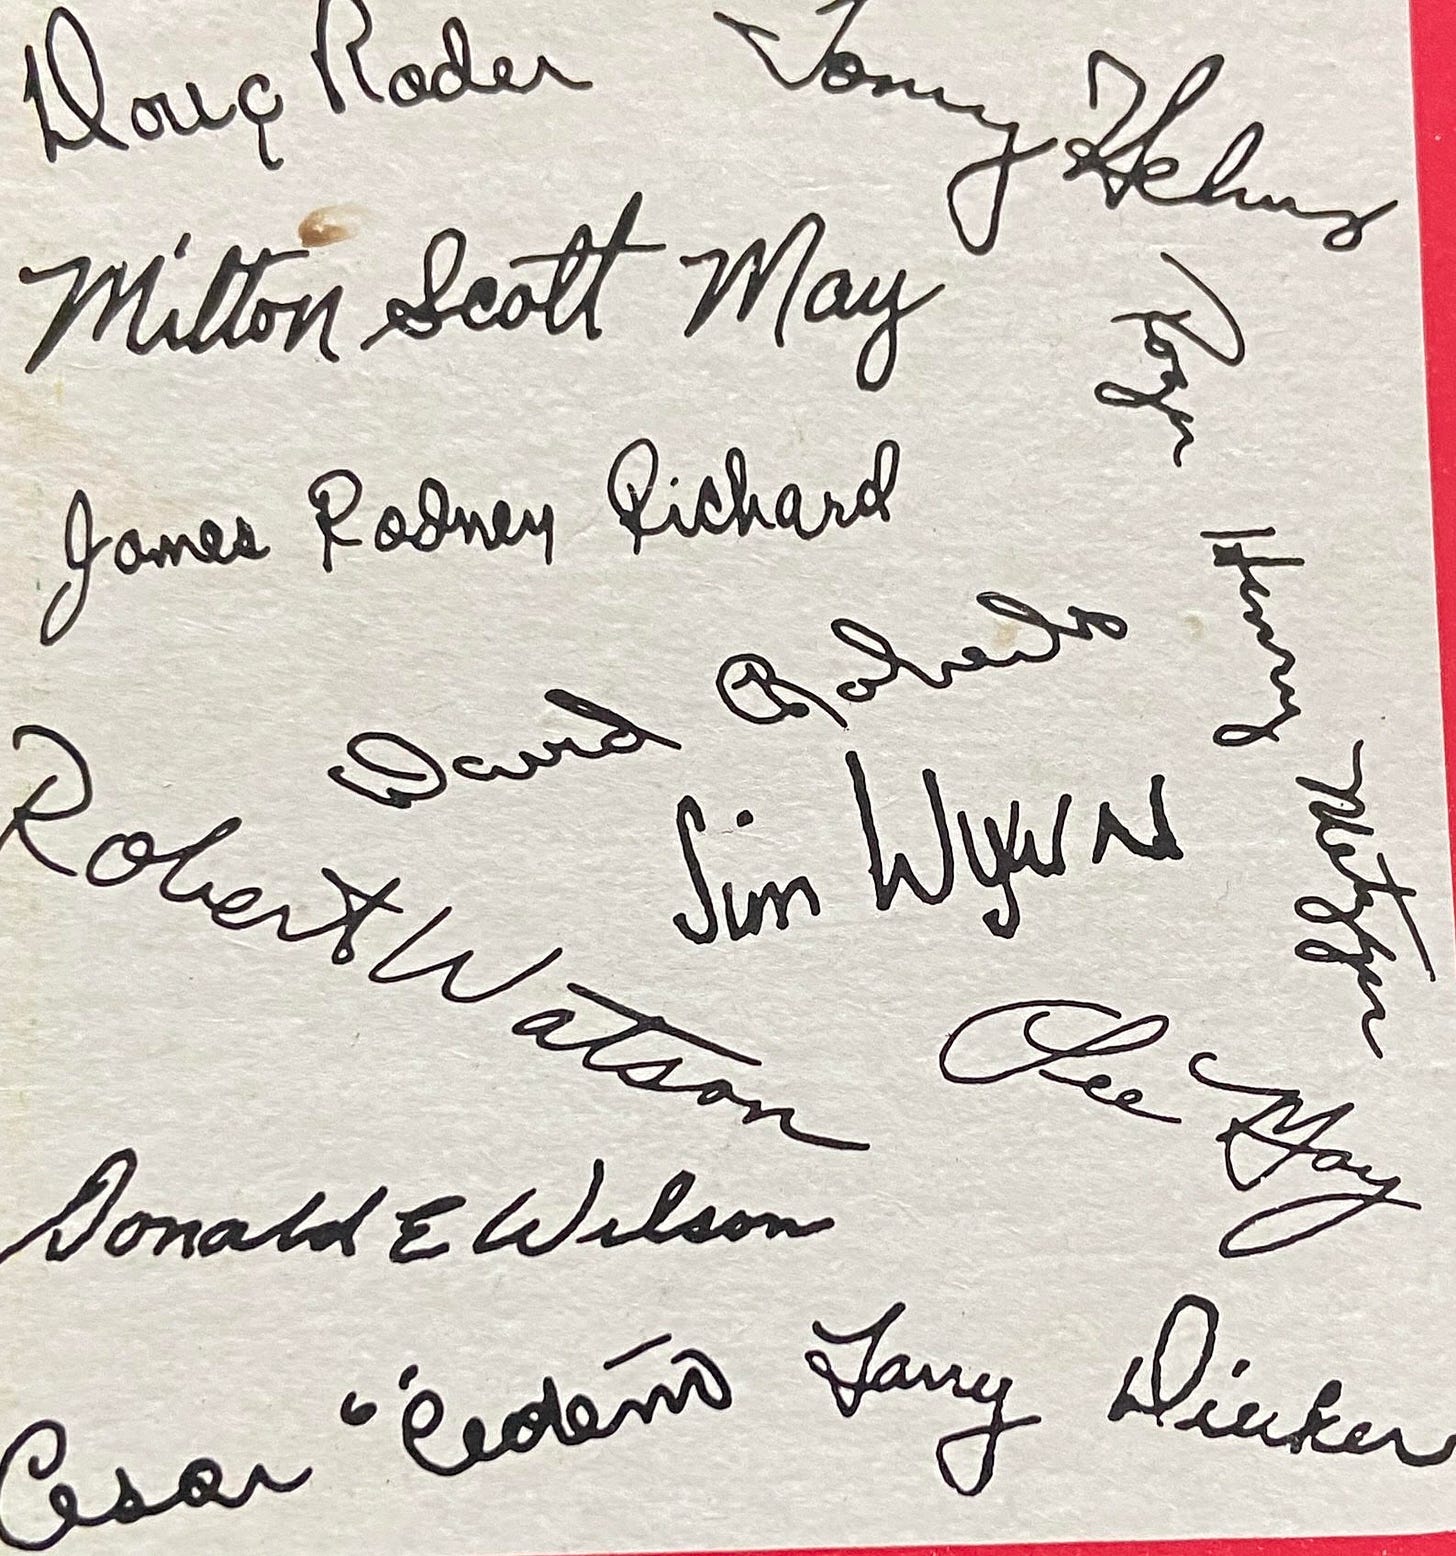 Doug Rader
Tommy Helms
Milton Scott May
Roger Henry Metzger
James Rodney Richard
David Roberts
Robert Watson
Jim Wynn
Lee May
Donald E Wilson
Cesar "Cedeño
Larry Dierker